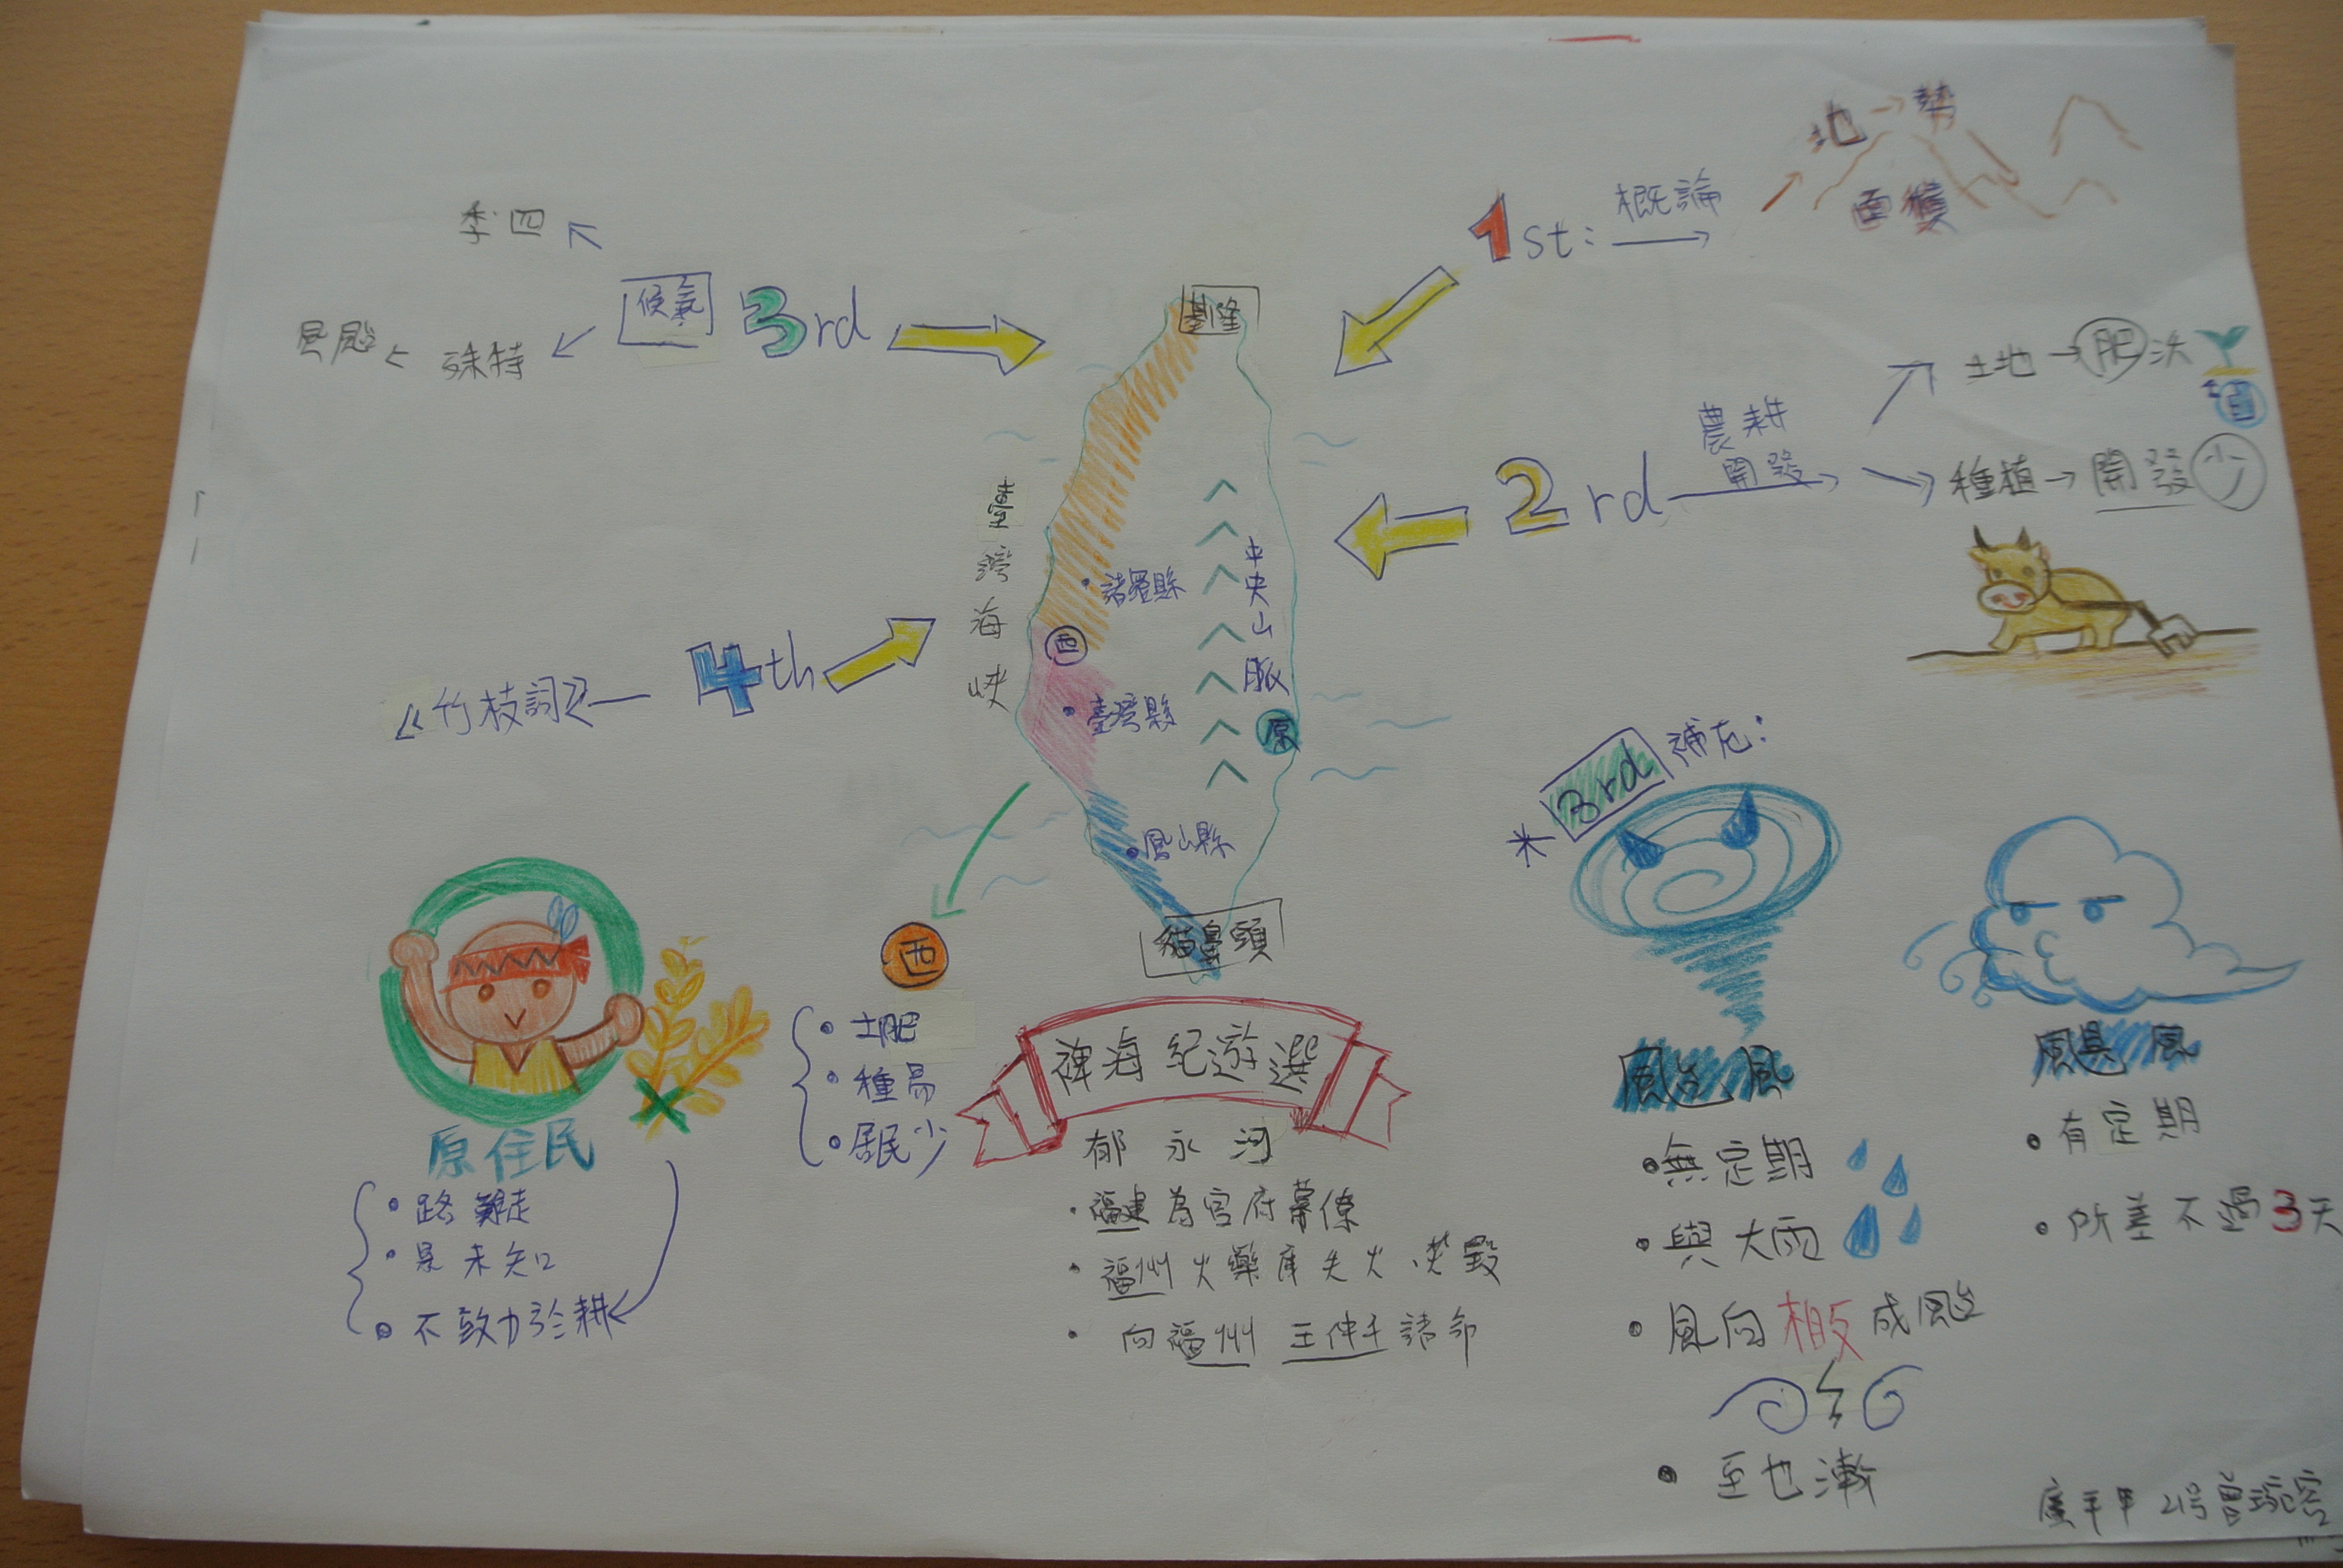 地→勢
面積
1st: 概論
季四
候氣 3rd
殊特
基隆
土地→肥沃
農耕
開發
2rd
種植→開發少
臺灣海峽
中央山脈
諸羅縣
西
4th
竹枝詞
臺灣縣
原
鳳山縣
貓鼻頭
3rd 補充:
西
土肥
種易
居民少
原住民
路難走
不致力於耕
裨海紀遊選
郁永河
福建為官府幕僚
福州火藥庫失火焚毀
向福州
颱風
無定期
與大雨
風向相反成颱
至也漸
颶風
有定期
所差不過3天